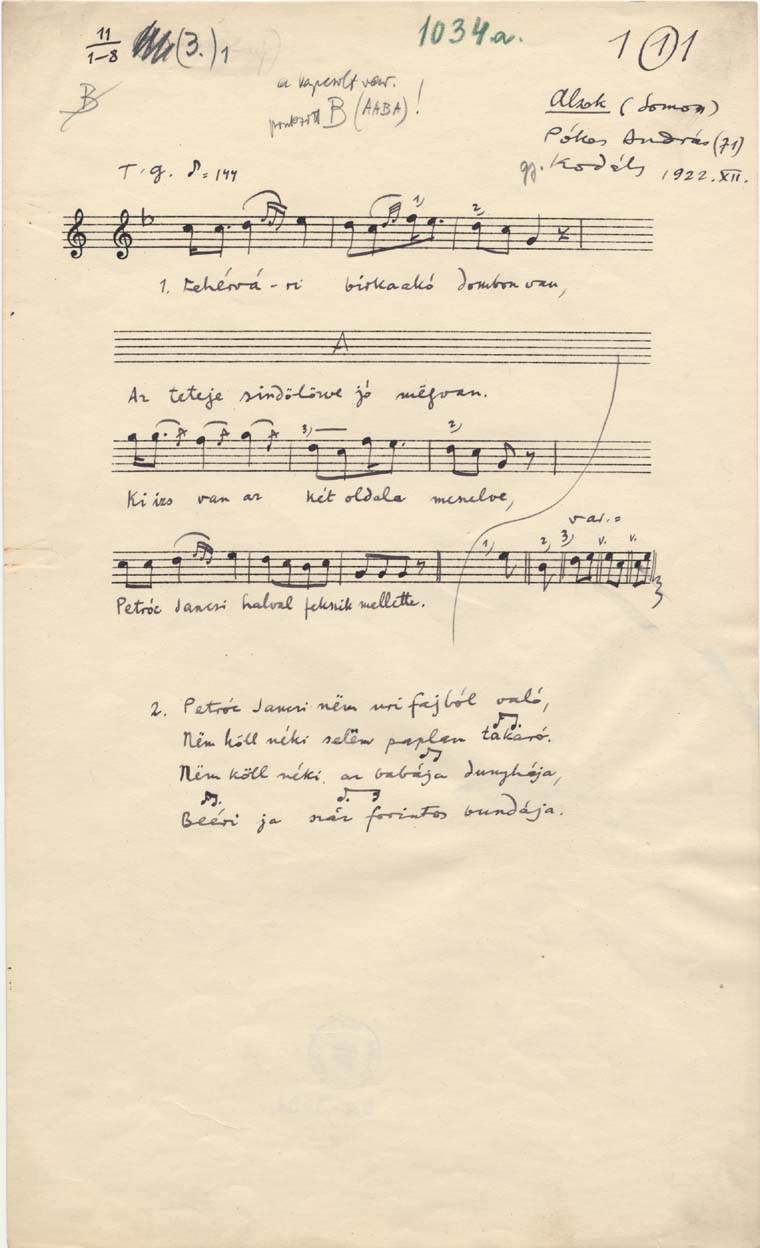 11
1-8
(3.) 1
1034a.
1 1 1
B
a kapcsolt var.
B (AABA)!
Alsok (Somogy)
Pókos András (71)
gy. Kodály 1922. XII.
T. g. ♪=144
1) 2)
1. Fehérvá-ri birkaakó dombon van,
A
Az teteje sindölözve jó mëgvan.
3) 2)
Ki izs van az két oldala meselve,
var.=
1) 2) 3) v. v.
Petróc Jancsi halval fekszik mellette.
2. Petróc Jancsi nëm uri fajból való,
Nëm köll néki selëm paplan takaró.
Nëm köll néki az babája dunyhája,
Beéri ja száz forintos bundája.